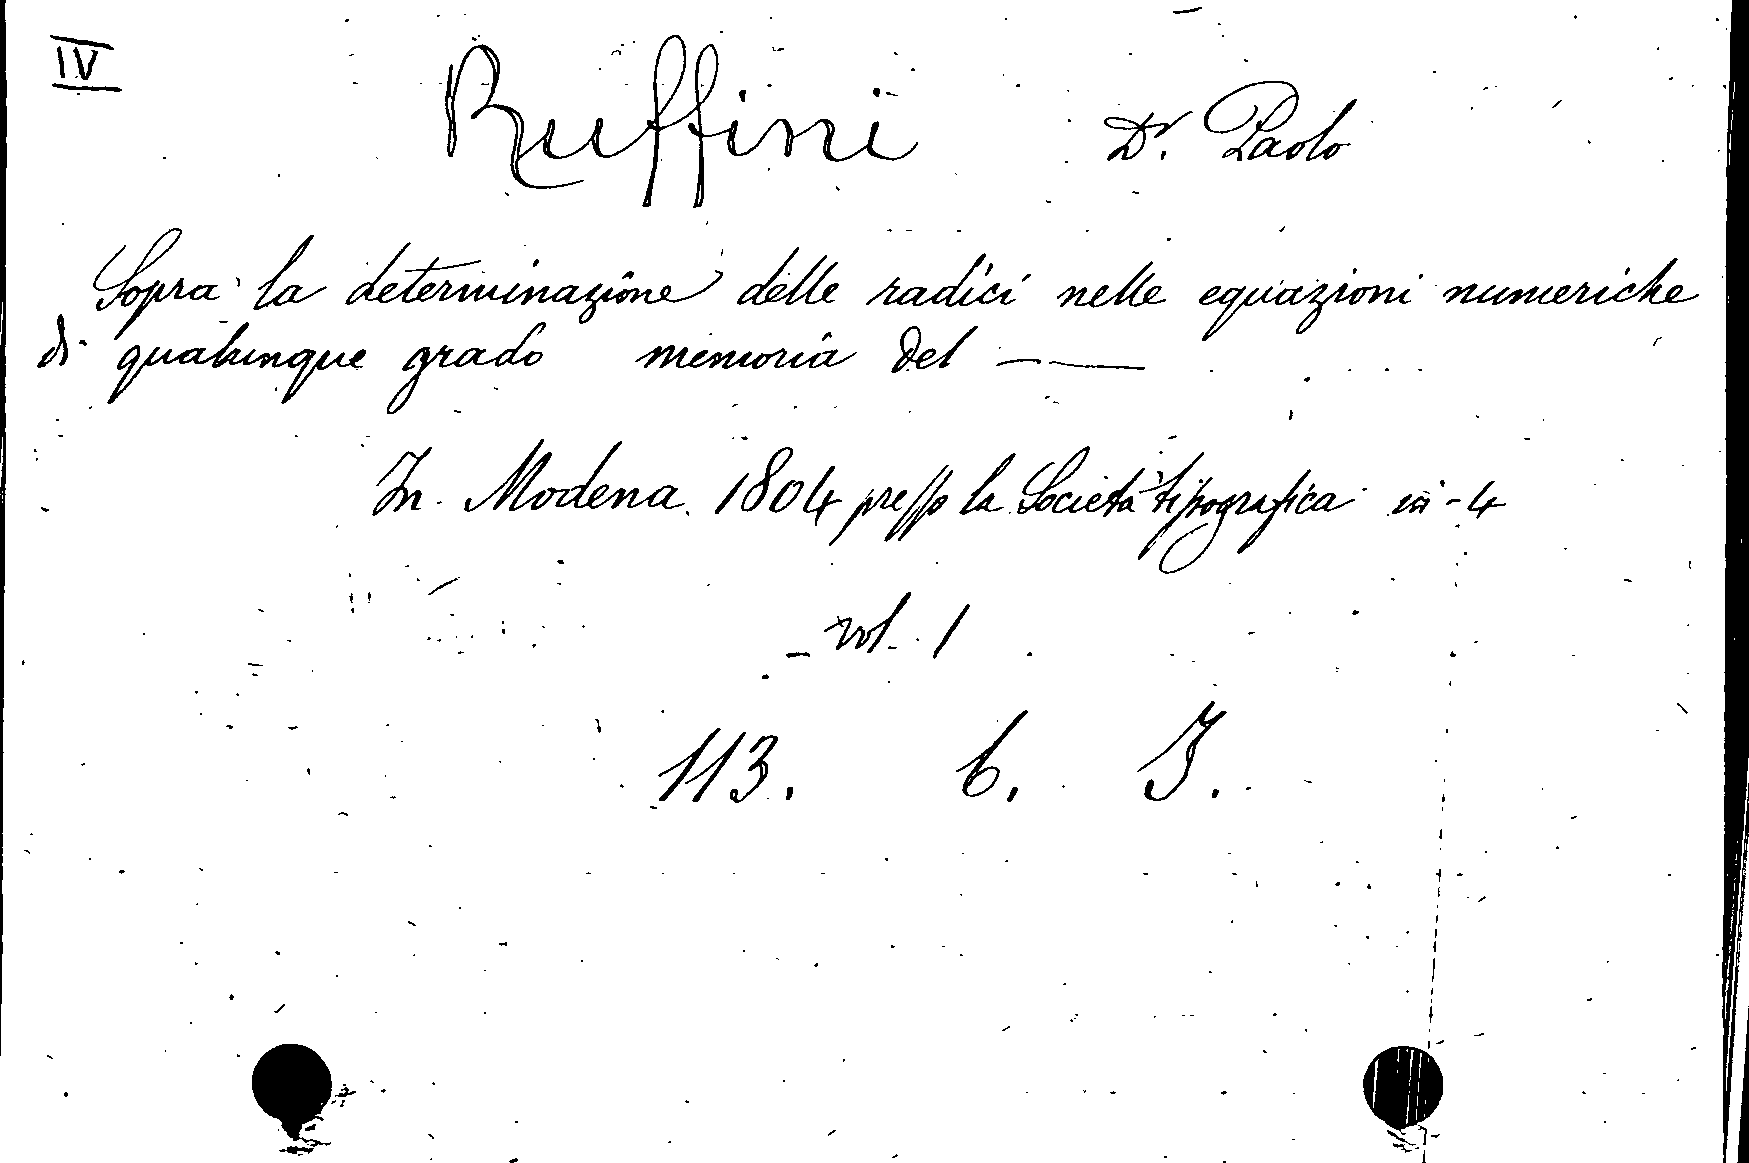 IV
Ruffini Dr. Paolo
Sopra la determinazione delle radici nelle equazioni numeriche
di qualunque grado memoria del ——
In Modena 1804 presso la Società tipografica in-4
vol. 1
113. 6. I.